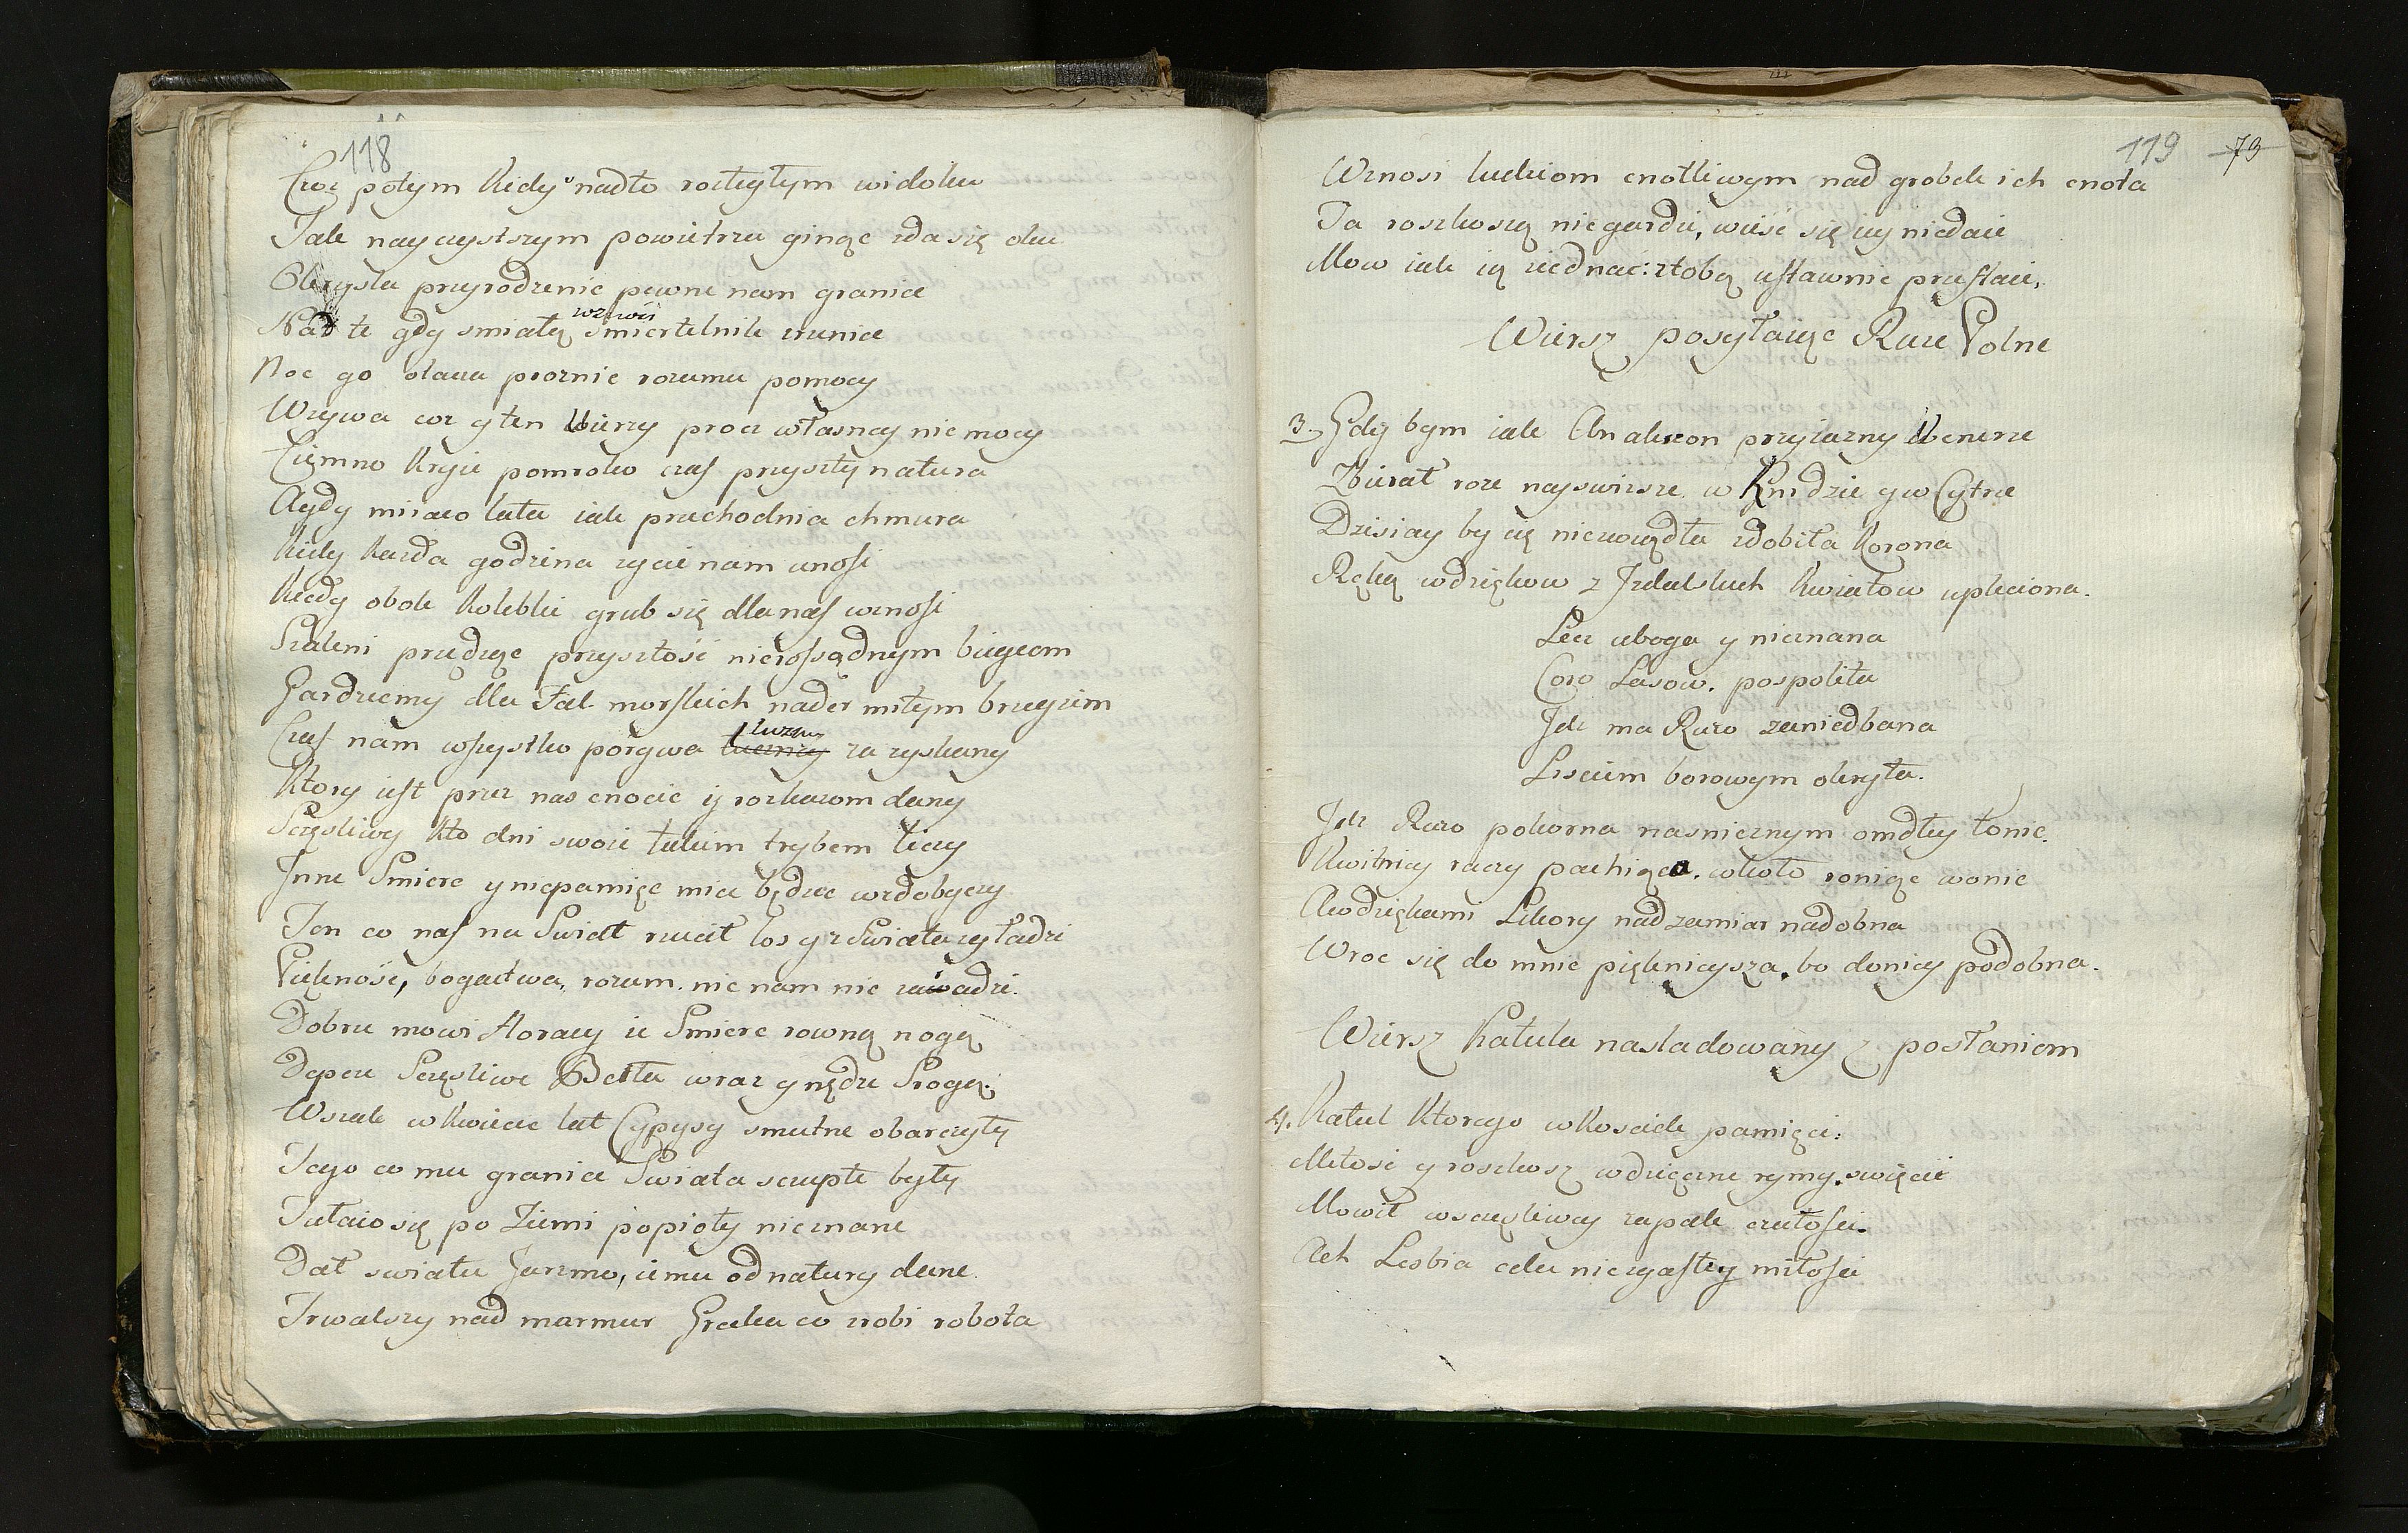 118
Coż potym Kiedy nadto rozległym widoku
Jak nayczystszym powietrzu ginąc zda się oku
Okryśla przyrodzenie pewne nam granice
Nad te gdy smiałą wzniosi smiertelnik zrenice
Noc go otacza prożnie rozumu pomocy
Wzywa coż y ten wierzy procz własney niemocy
Ciemno Kryie pomroko czas przyszły natura
A gdy miiaio lata iak przechodnia chmura
Kiedy Każda godzina zycie nam unosi
Kiedy obok Kolebki grub się dla nas wznosi
Szaleni przedząc przyszłość nierossądnym biegiem
Gardziemy dla Fal morskich nader miłym brzegiem
Czas nam wszystko porywa za zyskany
Ktory iest przez nas cnocie y rozkazom dany
Szczęsliwy Kto dni swoie takim trybem liczy
Inne Smierc y niepamięc miec będzie w zdobyczy
Ten co nas na Swiat rzucił los y z Swiata zgładzi
Piękność, bogactwa, rozum. nic nam nie zawadzi.
Dobrze mowi Horacy ze Smierc rowną nogą
Depcze Szczęsliwe Berła wraz y nędze Srogą;
Wszak w Kwiecie lat Cyprysy smutne obarczyły
Tego co mu granice Swiata szczupłe były
Tułaio się po Ziemi popioły nieznane
Dał swiatu Jarzmo, iemu od natury dane.
Trwalszy nad marmur Greka co robi robota
119 73
Wznosi ludziom cnotliwym nad grobek ich cnota
Ta roszkoszą niegardzi, wieść się iey niedaie
Mow iak ią ziednac: z tobą ustawnie przestaie,
Wiersz posyłaiąc Roze Polne
3. Gdy bym iak Anakreon przyiazny Wenerze
Zbierał roze nayswiesze w Knidzie y w Cytrze
Dzisiay by cię niezwiędła zdobiła Korona
Ręką wdzięków z Idalskich Kwiatow upleciona.
Lecz uboga y nieznana
Coro Lasow. pospolita
Idz ma Rozo zaniedbana
Lisciem borowym okryta.
Idz Rozo pokorna na snieznym omdley łonie.
Kwitniey raczy pachniąca. w koło roniąc wonie
A wdziękami Likory nad zamiar nadobna
Wroc się do mnie pięknieysza. bo do niey podobna.
Wiersz Katula nasladowany z posłaniem
4. Katul Ktorego w Kosciele pamięci:
Miłość y roszkosz wdzięczne rymy. swięcie
Mowił w szczęsliwey zapale czułosci.
Ach Lesbia celu niezgasłey miłosci